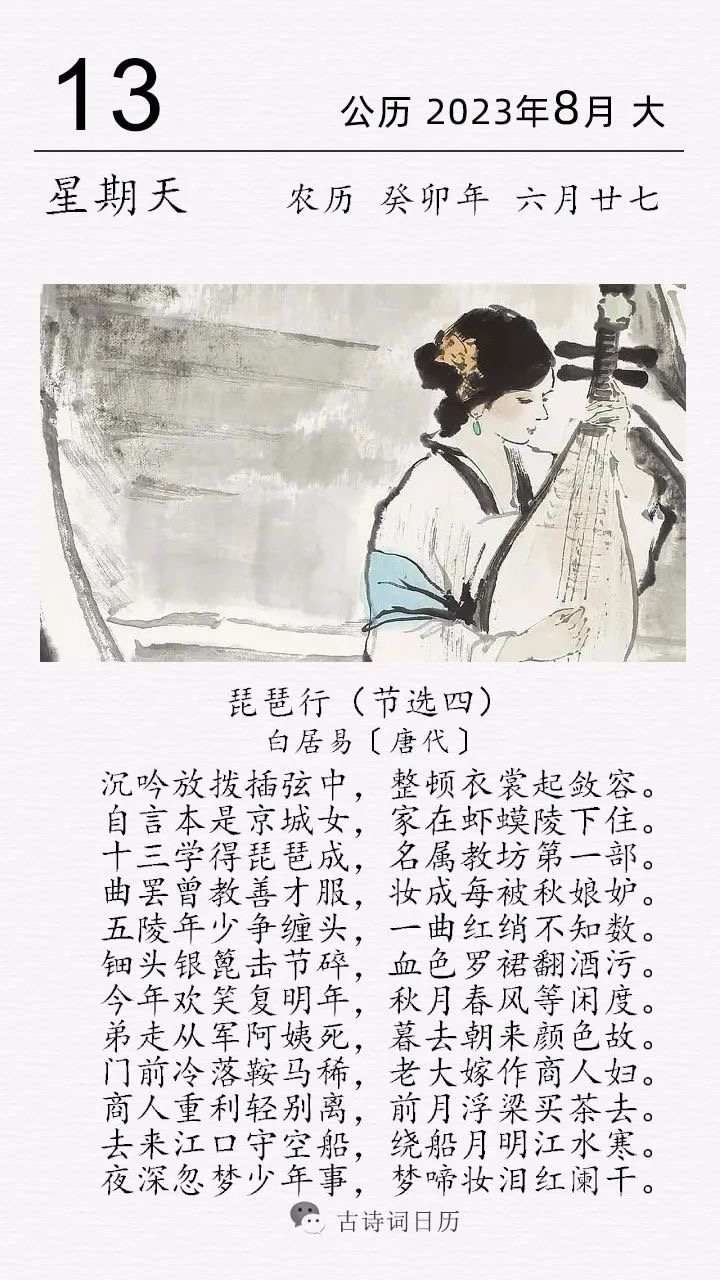 13
公历 2023年8月 大
星期天 农历 癸卯年 六月廿七
琵琶行（节选四）
白居易〔唐代〕
沉吟放拨插弦中，整顿衣裳起敛容。
自言本是京城女，家在虾蟆陵下住。
十三学得琵琶成，名属教坊第一部。
曲罢曾教善才服，妆成每被秋娘妒。
五陵年少争缠头，一曲红绡不知数。
钿头银篦击节碎，血色罗裙翻酒污。
今年欢笑复明年，秋月春风等闲度。
弟走从军阿姨死，暮去朝来颜色故。
门前冷落鞍马稀，老大嫁作商人妇。
商人重利轻别离，前月浮梁买茶去。
去来江口守空船，绕船月明江水寒。
夜深忽梦少年事，梦啼妆泪红阑干。
古诗词日历